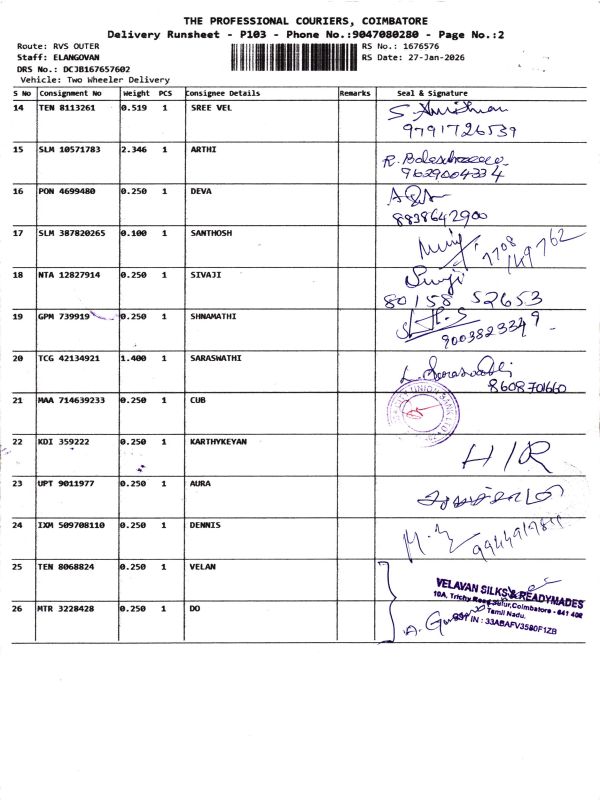 THE PROFESSIONAL COURIERS, COIMBATORE
Delivery Runsheet - P103 - Phone No.:9047080280 - Page No.:2
Route: RVS OUTER
Staff: ELANGOVAN
DRS No.: DCJB167657602
Vehicle: Two Wheeler Delivery
RS No.: 1676576
RS Date: 27-Jan-2026
S No Consignment No Weight PCS Consignee Details Remarks Seal & Signature
14 TEN 8113261 0.519 1 SREE VEL
9791726539
15 SLM 10571783 2.346 1 ARTHI
9629004334
16 PON 4699480 0.250 1 DEVA
8838642900
17 SLM 387820265 0.100 1 SANTHOSH
7708
149762
18 NTA 12827914 0.250 1 SIVAJI
80158 52653
19 GPM 739919 0.250 1 SHNAMATHI
9003823349
20 TCG 42134921 1.400 1 SARASWATHI
L. Saraswathi
8608701660
21 MAA 714639233 0.250 1 CUB
22 KDI 359222 0.250 1 KARTHYKEYAN
H/R
23 UPT 9011977 0.250 1 AURA
24 IXM 509708110 0.250 1 DENNIS
25 TEN 8068824 0.250 1 VELAN
VELAVAN SILKS & READYMADES
10A, Trichy Road, Sulur, Coimbatore - 641 402
Tamil Nadu.
GST IN : 33ABAFV3580F1ZB
26 MTR 3228428 0.250 1 DO